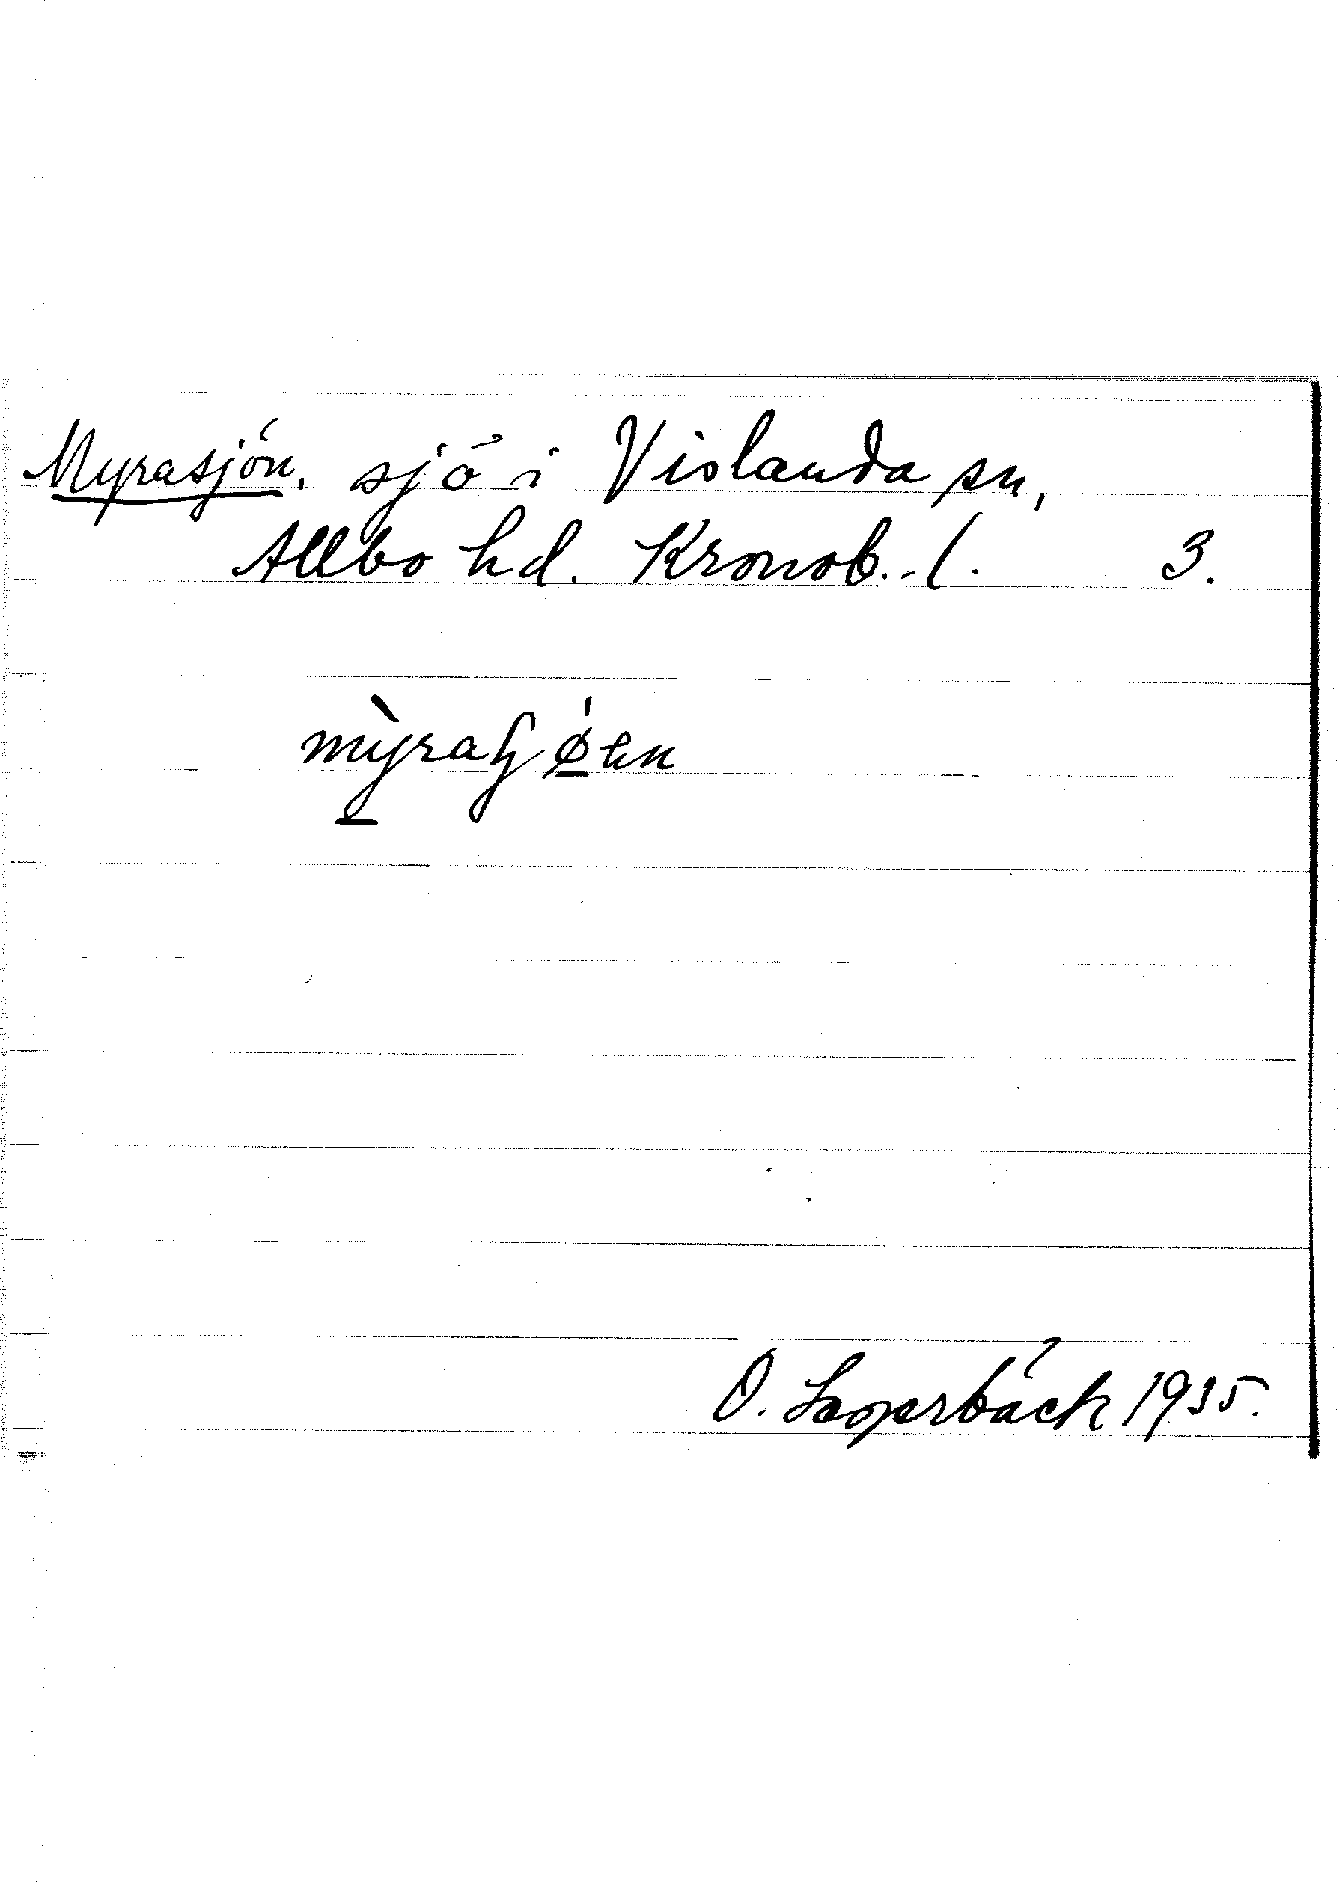 Myrasjön, sjö i Vislanda sn,
Allbo hd. Kronob. l. 3.
mỳraɧǿen
O. Lagerbäck 1935.